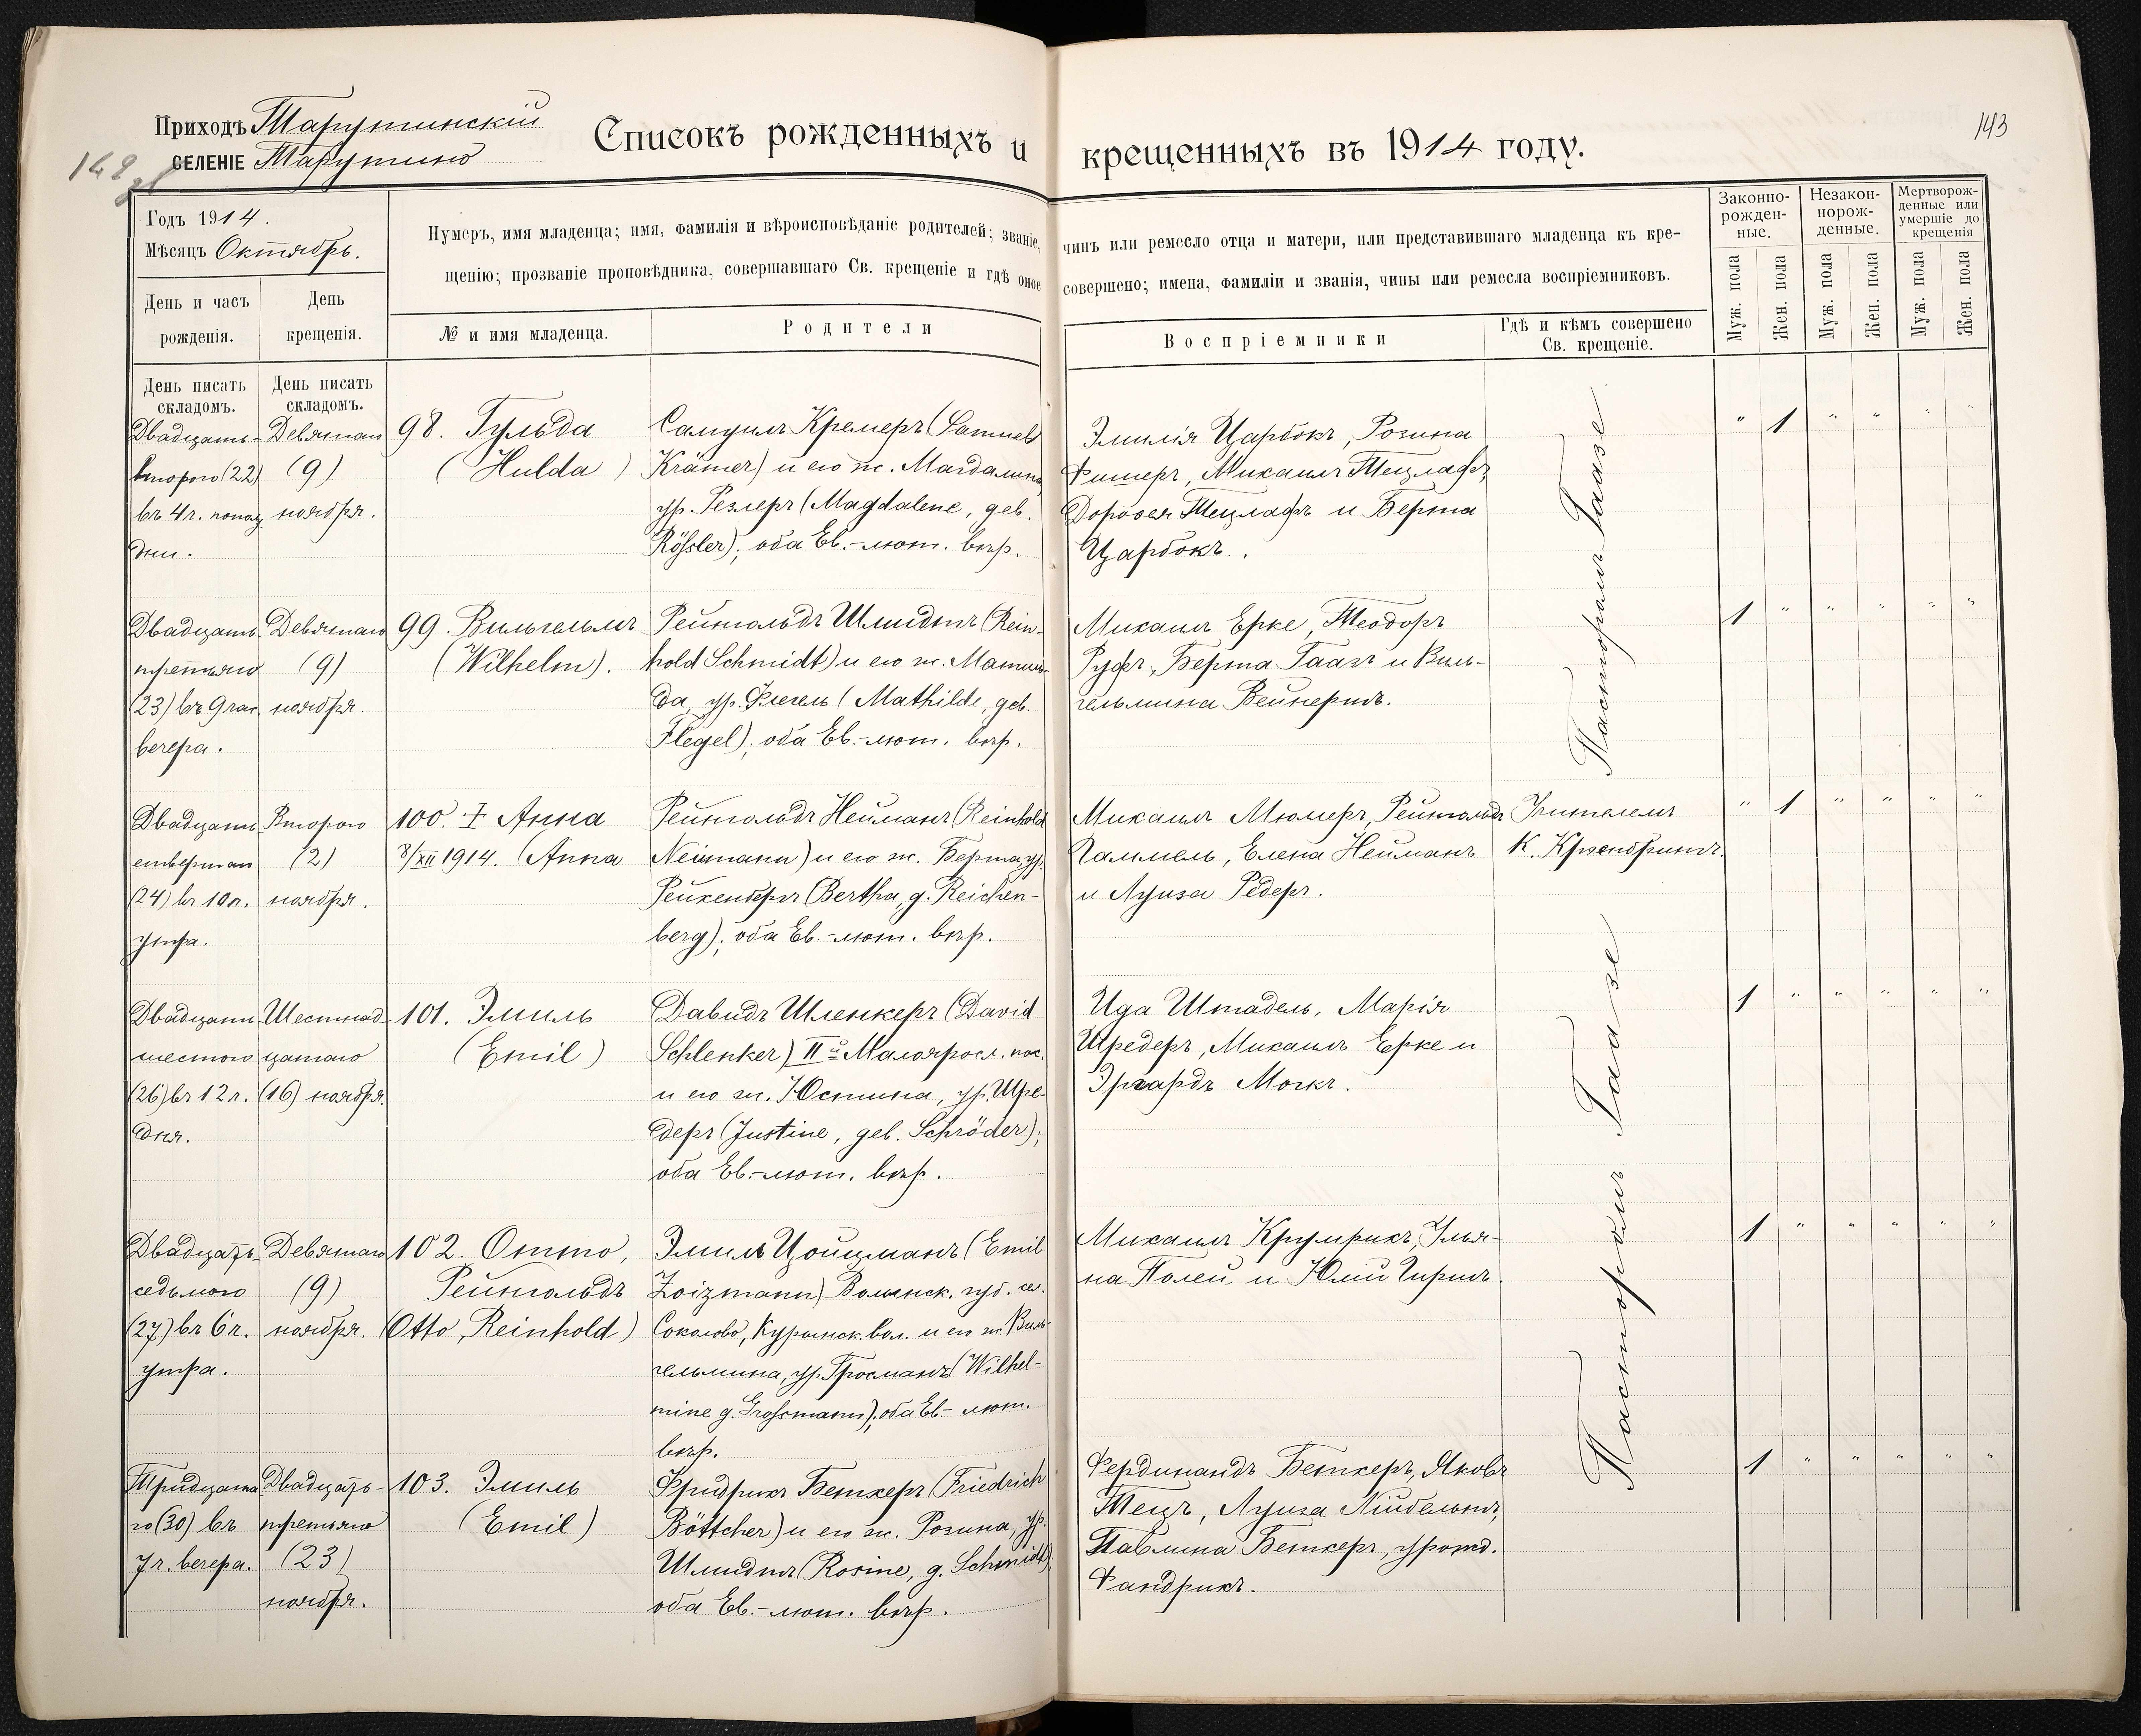 Приходъ Тарутинскій
селеніе Тарутино
Списокъ рожденныхъ и крещенныхъ въ 1914 году.
143
Годъ 1914.
Мѣсяцъ Октябрь.
День и часъ рожденія.
День крещенія.
Нумеръ, имя младенца; имя, фамилія и вѣроисповѣданіе родителей; званіе, чинъ или ремесло отца и матери, или представившаго младенца къ кре-
щенію; прозваніе проповѣдника, совершавшаго Св. крещеніе и гдѣ оное совершено; имена, фамиліи и званія, чины или ремесла воспріемниковъ.
№ и имя младенца.
Родители
Воспріемники
Гдѣ и кѣмъ совершено
Св. крещеніе.
Законно-
рожден-
ные.
Незакон-
норож-
денные.
Мертворож-
денные или
умершіе до
крещенія
Муж. пола
Жен. пола
Муж. пола
Жен. пола
Муж. пола
Жен. пола
День писать
складомъ.
День писать
складомъ.
Двадцать-
второго (22)
въ 4 ч. попол.
дни.
Девятаго
(9)
ноября.
98. Гульда
(Hulda)
Самуилъ Кремеръ (Samuel
Krämer) и его ж. Магдалина,
ур. Резлеръ (Magdalene, geb.
Rößler); оба Ев.-лют. вѣр.
Эмилія Царбокъ, Розина
Фишеръ, Михаилъ Тецлафъ,
Доротея Тецлафъ и Берта
Царбокъ.
Пасторомъ Гаазе
" 1 " " " "
Двадцать
третьяго
(23) въ 9 час.
вечера.
Девятаго
(9)
ноября.
99. Вильгельмъ
(Wilhelm).
Рейнгольдъ Шмидтъ (Rein-
hold Schmidt) и его ж. Матиль-
да, ур. Флегель (Mathilde, geb.
Flegel); оба Ев.-лют. вѣр.
Михаилъ Ерке, Теодоръ
Руфъ, Берта Гаазъ и Виль-
гельмина Вейнертъ.
1 " " " " "
Двадцать
четвертаго
(24) въ 10 ч.
утра.
Второго
(2)
ноября.
100. Ɨ Анна
8/XII 1914. (Anna
Рейнгольдъ Нейманъ (Reinhold
Neimann) и его ж. Берта, ур.
Рейхенбергъ (Bertha, g. Reichen-
berg); оба Ев.-лют. вѣр.
Михаилъ Мюллеръ, Рейнгольдъ
Гаммель, Елена Нейманъ
и Луиза Редеръ.
Учителемъ
" 1 " " " "
Двадцать
шестого
(26) въ 12 ч.
дня.
Шестнад-
цатаго
(16) ноября.
101. Эмиль
(Emil)
Давидъ Шленкеръ (David
Schlenker) II го Малояросл. пос.
и его ж. Юстина, ур. Шре-
деръ (Justine, geb. Schröder);
оба Ев.-лют. вѣр.
Ида Штадель, Марія
Шредеръ, Михаилъ Ерке и
Эргардъ Москъ.
Пасторомъ Гаазе
1 " " " " "
Двадцать
седьмого
(27) въ 6 ч.
утра.
Девятаго
(9)
ноября.
102. Отто,
Рейнгольдъ
(Otto, Reinhold)
Эмиль Цойцманъ (Emil
Zoizmann) Волынск. губ. сел.
Соколово, вол. и его ж. Виль-
гельмина, ур. Гросманъ (Wilhel-
mine g. Großmann); оба Ев.-лют.
вѣр.
Михаилъ Крумрикъ, Улья-
на Полей и Юлій Гиршъ.
1 " " " " "
Тридцата-
го (30) въ
7 ч. вечера.
Двадцать-
третьяго
(23)
ноября.
103. Эмиль
(Emil)
Фридрихъ Беткеръ (Friedrich
Böttcher) и его ж. Розина, ур.
Шмидтъ (Rosine, g. Schmidt);
оба Ев.-лют. вѣр.
Фердинандъ Беткеръ, Яковъ
Тецъ, Луиза
Павлина Беткеръ, урожд.
Фандрихъ.
1 " " " " "